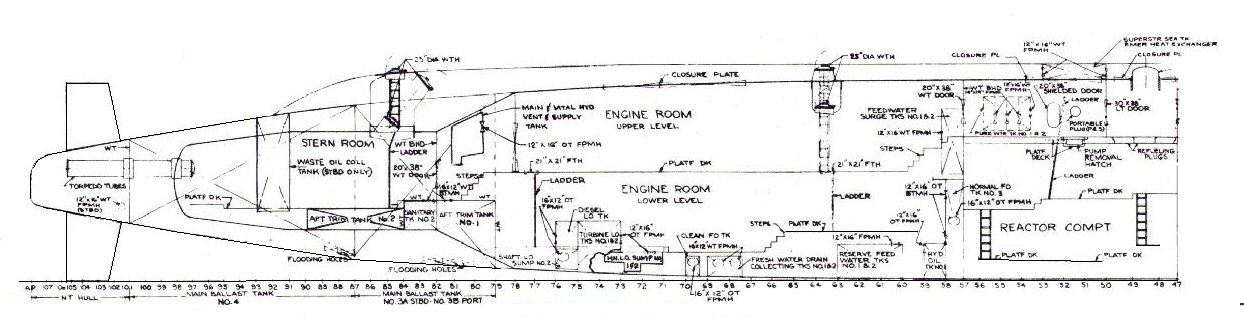 SUPERSTR SEA TK
EMER HEAT EXCHANGER
12"X16" WT
FPMH
CLOSURE PL
CLOSURE PL
25" DIA WTH
25" DIA WTH
CLOSURE PLATE
20"X38"
WT DOOR
WT BHD
20"X38"
SHIELDED DOOR
LADDER
20"X38"
LT DOOR
PORTABLE
PLUG (P&S)
MAIN & VITAL HYD
VENT & SUPPLY
TANK
12"X18" OT FPMH
ENGINE ROOM
UPPER LEVEL
FEEDWATER
SURGE TKS 1 & 2
12"X16" WT FPMH
PURE WTR TK NO. 1 & 2
STERN ROOM
WT BHD
LADDER
WASTE OIL COLL
TANK (STBD ONLY)
20"X38"
WT DOOR
STEPS
21"X21" FTH
PLATF DK
21"X21" FTH
PLATF
DECK
PUMP
REMOVAL
HATCH
REFUELING
PLUGS
LADDER
WT
TORPEDO TUBES
12"X16" WT
FPMH
(STBD)
PLATF DK
AFT TRIM TANK NO. 2
SANITARY
TK NO. 2
AFT TRIM TANK
NO. 1
WT
LADDER
16"X12" OT
FPMH
ENGINE ROOM
LOWER LEVEL
LADDER
12"X16" OT
BTMH
NORMAL FO
TK NO. 3
16"X12" OT FPMH
PLATF DK
DIESEL
LO TK
TURBINE LO
TKS NO. 1 & 2
12"X16"
OT FPMH
CLEAN FO TK
STEPS
PLATF DK
12"X16" OT
FPMH
REACTOR COMPT
12"X16" FPMH
FLOODING HOLES
FLOODING HOLES
SHAFT LO
SUMP NO. 2
MN. L.O. SUMP NO.
1 & 2
16X12" WT FPMH
FRESH WATER DRAIN
COLLECTING TKS NO. 1 & 2
RESERVE FEED
WATER TKS
NO. 1 & 2
HYD
OIL
TK NO. 1
PLATF DK
PLATF DK
16"X12" OT
FPMH
AP 107 106 105 104 103 102 101 100 99 98 97 96 95 94 93 92 91 90 89 88 87 86 85 84 83 82 81 80 79 78 77 76 75 74 73 72 71 70 69 68 67 66 65 64 63 62 61 60 59 58 57 56 55 54 53 52 51 50 49 48 47
NT HULL
MAIN BALLAST TANK
NO. 4
MAIN BALLAST TANK
NO. 3A STBD - NO. 3B PORT